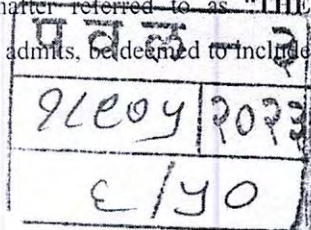 after referred to as "THE
admits, be deemed to include
प व ल - २
१८९०५ २०२३
६/५०